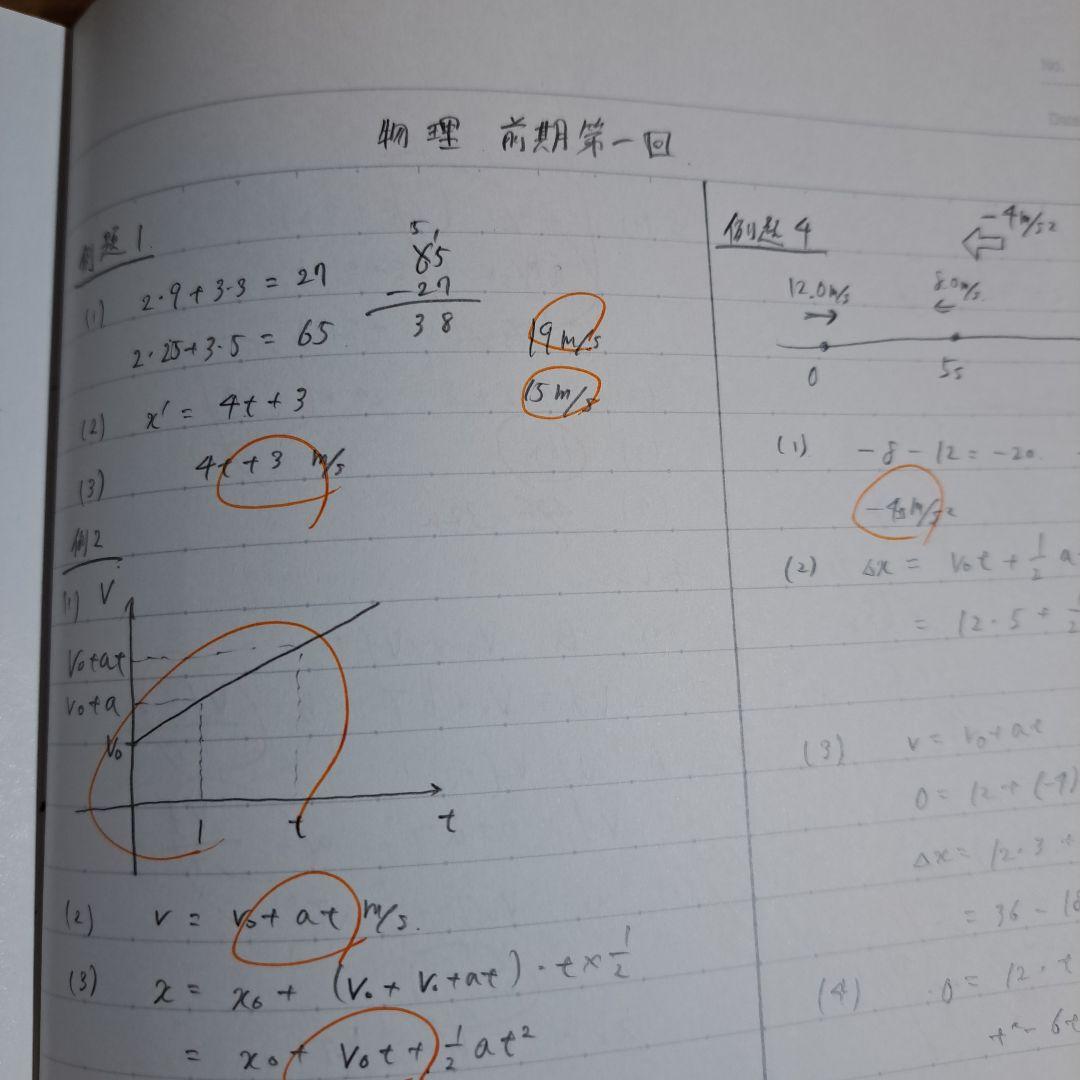 物理 前期第一回
例題1.
(1) 2・9+3・3 = 27
2・25+3・5 = 65
65
-27
38
19m/s
15m/s
(2) x' = 4t+3
(3) 4t+3 m/s
例2
(1) V
V₀+at
V₀+a
V₀
1 t t
(2) v = v₀+at m/s.
(3) x = x₀ + (v₀+v₀+at)・t×1/2
= x₀+ v₀t + 1/2 at²
例題4
-4m/s²
12.0m/s 8.0m/s
0 5s
(1) -8-12=-20.
(2) Δx = v₀t + 1/2 a
= 12・5 +
(3) v = v₀+at
0 = 12+(-4)
Δx = 12・3 +
= 36 - 18
(4) 0 = 12・t
No.
Date